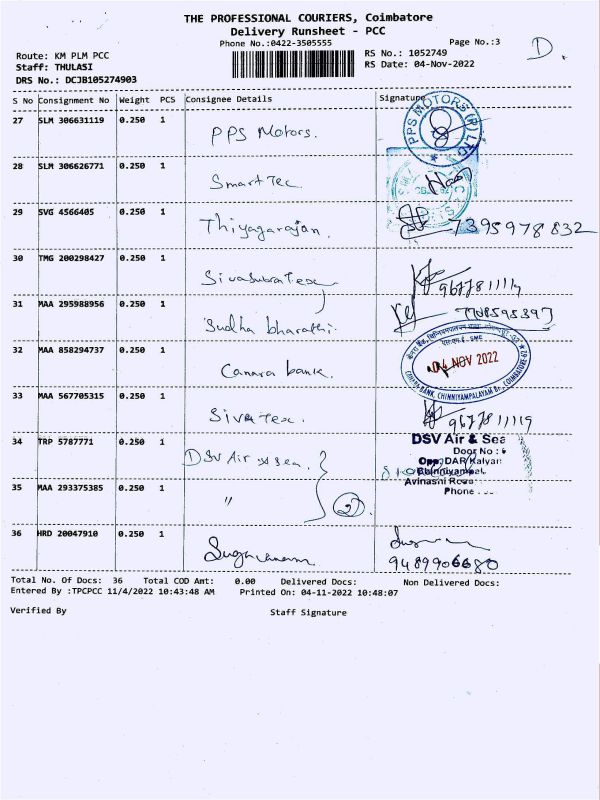 THE PROFESSIONAL COURIERS, Coimbatore
Delivery Runsheet - PCC
Phone No.:0422-3505555
Page No.:3
D.
Route: KM PLM PCC
RS No.: 1052749
Staff: THULASI
RS Date: 04-Nov-2022
DRS No.: DCJB105274903
S No Consignment No Weight PCS Consignee Details Signature
27 SLM 306631119 0.250 1 PPS Motors.
PPS MOTORS (P) LTD
28 SLM 306626771 0.250 1 Smart Tec
29 SVG 4566405 0.250 1 Thiyagarajan. 7395978832
30 TMG 200298427 0.250 1 Sivasubra Tex 9677811119
31 MAA 295988956 0.250 1 Sudha bharathi. 7708595397
32 MAA 858294737 0.250 1 Canara bank.
04 NOV 2022
CANARA BANK, CHINNIYAMPALAYAM Br., COIMBATORE-62
33 MAA 567705315 0.250 1 Siva Tex. 9677811119
34 TRP 5787771 0.250 1 DSV Air & sea.
DSV Air & Sea
Door No : 6
Opp. DAR Kalyan
Chinniyampal
Avinashi Road
Phone :
35 MAA 293375385 0.250 1 " 2
36 HRD 20047910 0.250 1 9489906680
Total No. Of Docs: 36 Total COD Amt: 0.00 Delivered Docs: Non Delivered Docs:
Entered By :TPCPCC 11/4/2022 10:43:48 AM Printed On: 04-11-2022 10:48:07
Verified By Staff Signature